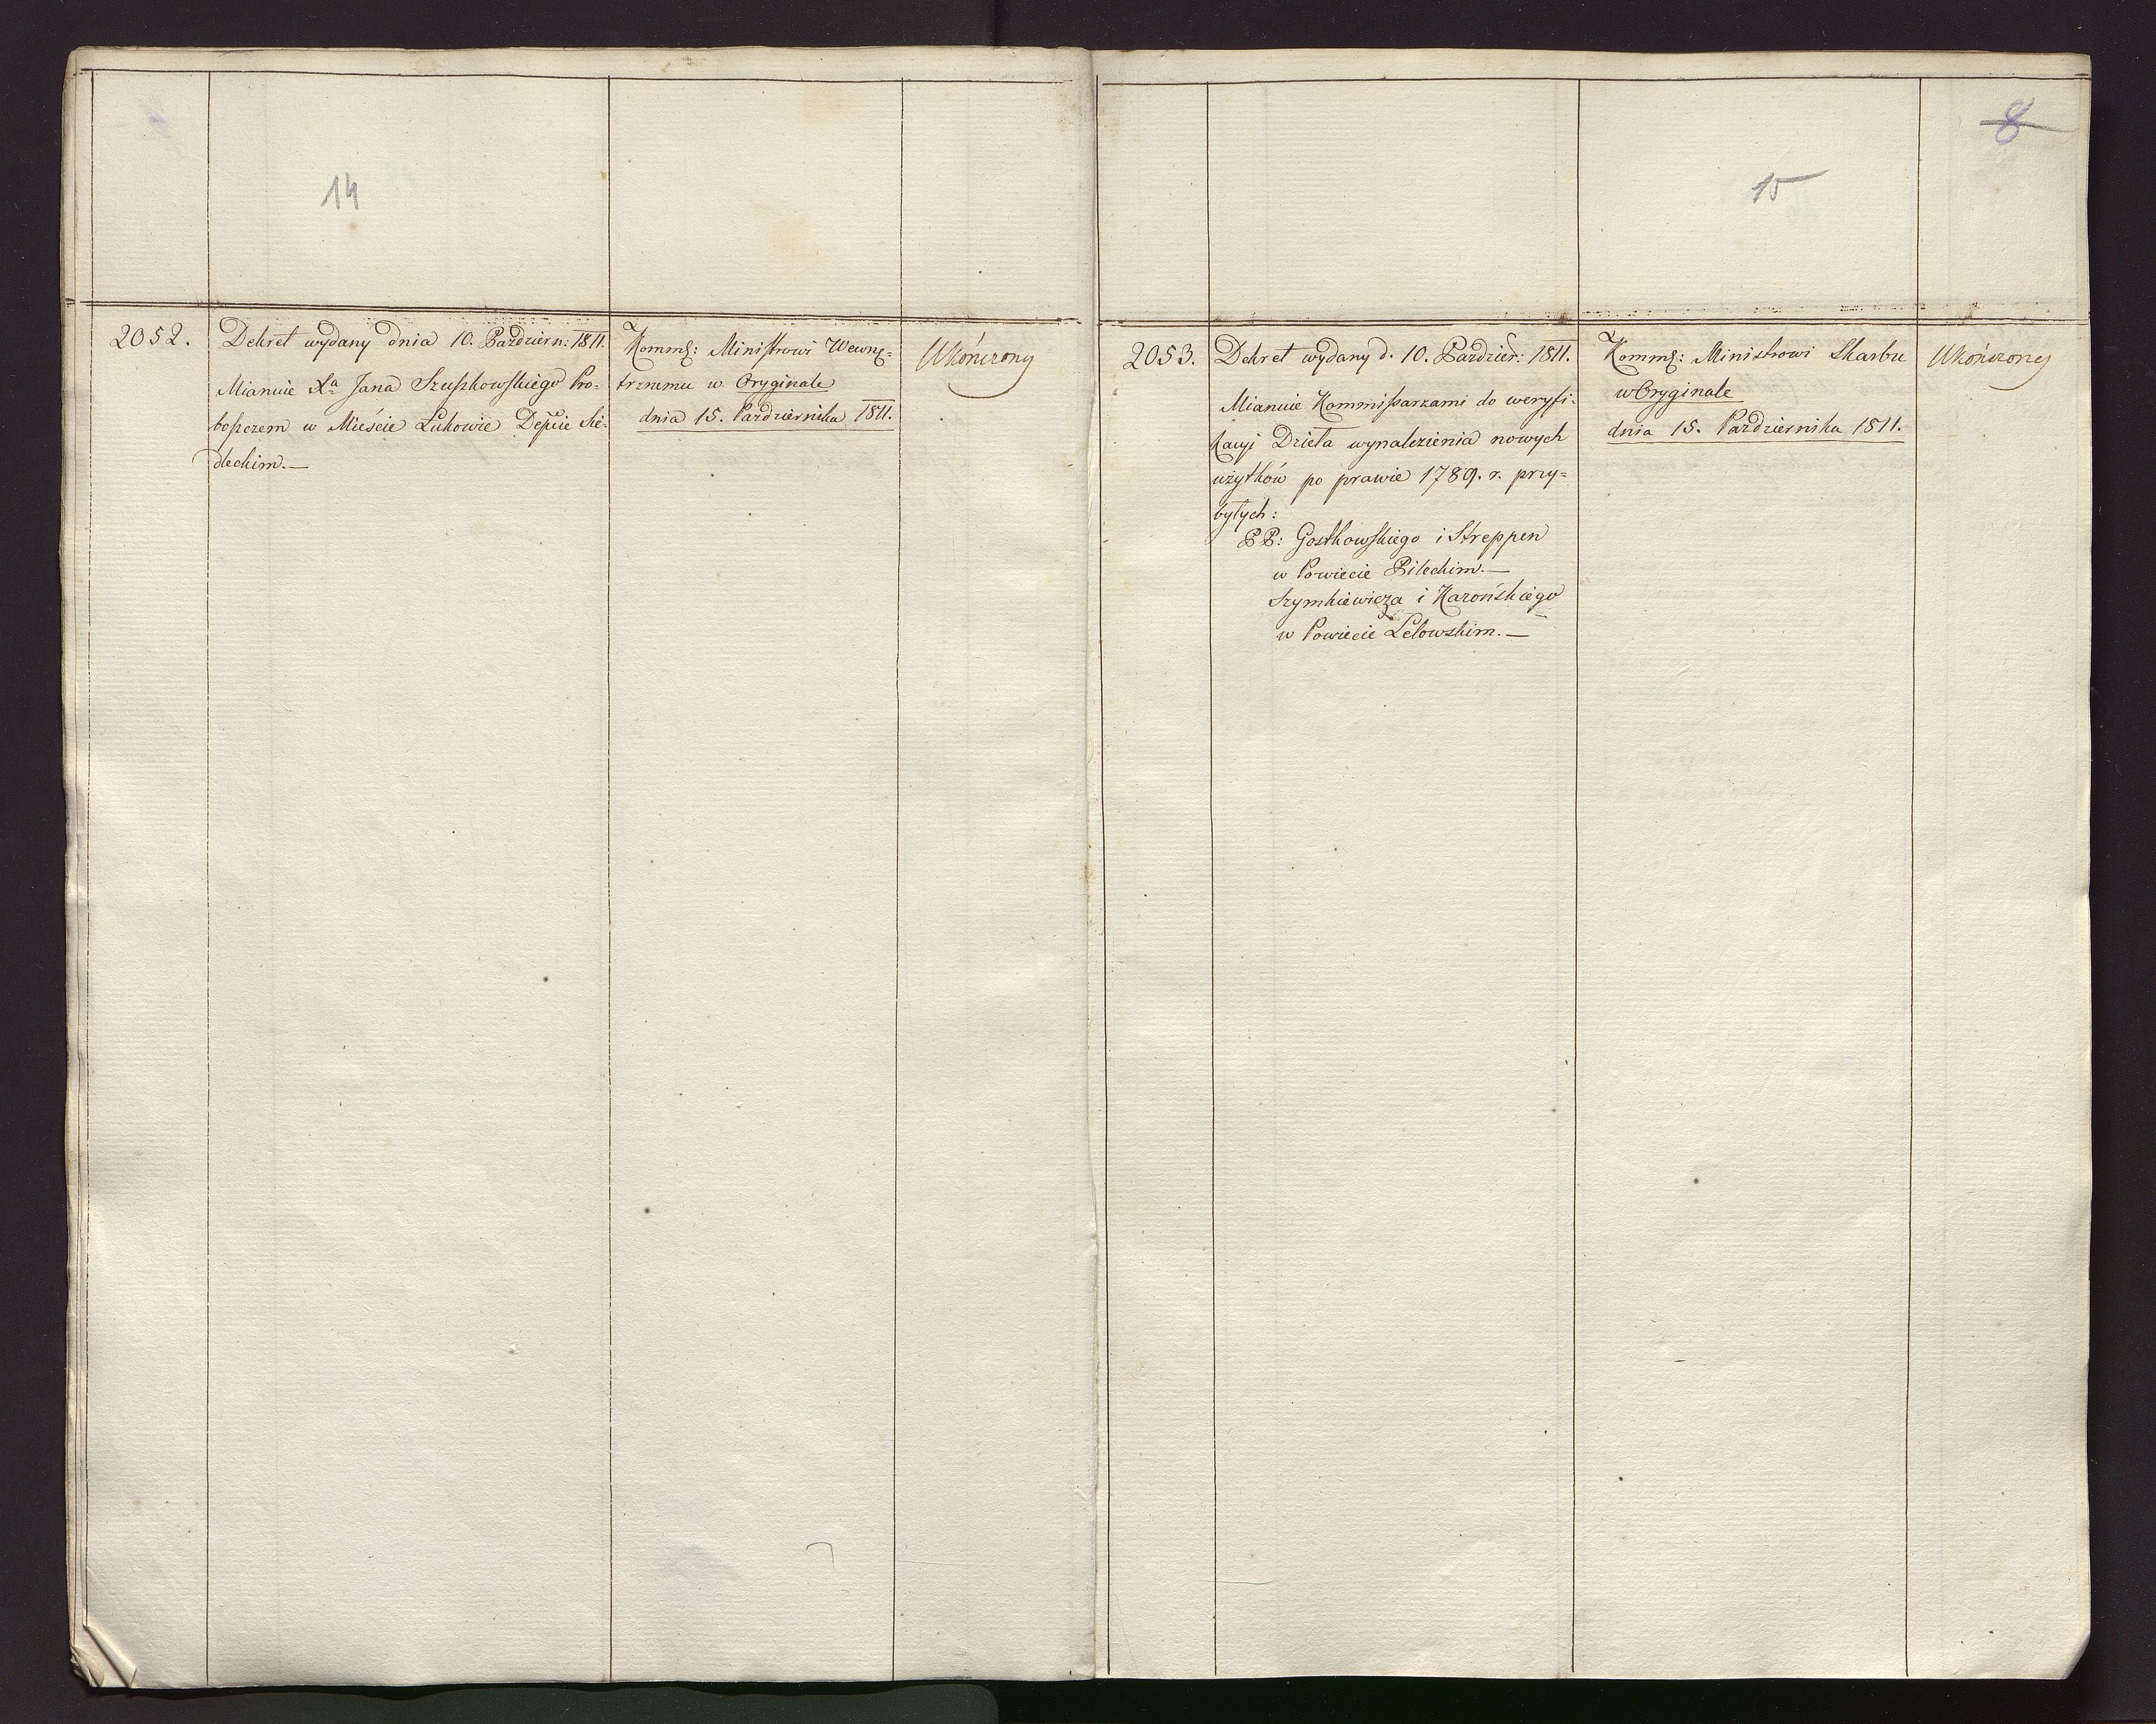 14
2052.
Dekret wydany dnia 10. Październ: 1811.
Mianuie Xa Jana Szuszkowskiego Pro-
boszczem w Mieście Łukowie Depcie Sie-
dleckim.—
Komm: Ministrowi Wewnę-
trznemu w Oryginale
dnia 15. Października 1811.
Ukończony
8
15
2053.
Dekret wydany d. 10. Paździer: 1811.
Mianuie Kommissarzami do weryfi-
kacyi Dzieła wynalezienia nowych
użytków po prawie 1789. r. przy-
byłych:
PP: Gostkowskiego i Streppen
w Powiecie Pileckim.—
Szymkiewicza i Karońskiego
w Powiecie Lelowskim.—
Komm: Ministrowi Skarbu
w Oryginale
dnia 15. Października 1811.
Ukończony